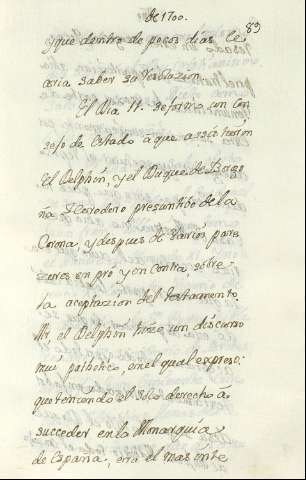 de 1700.
89
y que dentro de pocos dias le
aria saber su
El Dia 11. se formo un Con
sejo de Estado â que assistieron
El Delphin, y el Duque de Borgo
ña Heredero presuntibo de la
Corona, y despues de varios pare
zeres en pro y en contra, sobre
la aceptazion del testamento,
Mr, el Delphin hizo un discurso
mui pathetico, en el qual expreso:
que teniendo el solo derecho â
succeder en la Monarquia
de España, era el mas inte